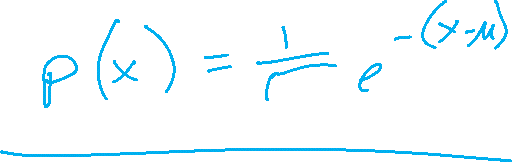 p(x) = 1/√ e^-(x-μ)